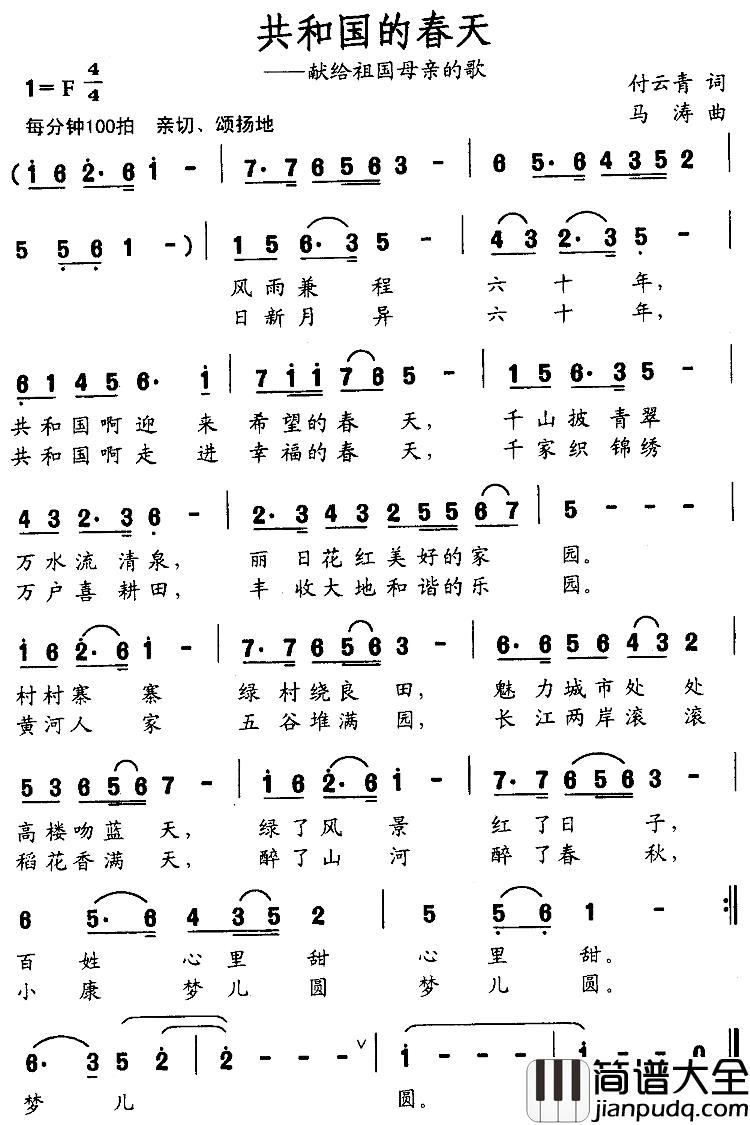 共和国的春天
——献给祖国母亲的歌
1=F 4/4
付云青 词
马涛 曲
每分钟100拍 亲切、颂扬地
(i 6 2· 6 i - | 7· 7 6 5 6 3 - | 6 5· 6 4 3 5 2 |
5 5 6 1 - ) | 1 5 6· 3 5 - | 4 3 2· 3 5 - |
风雨兼程 六十年,
日新月异 六十年,
6 1 4 5 6· i | 7 i i 7 6 5 - | 1 5 6· 3 5 - |
共和国啊迎来 希望的春天, 千山披青翠
共和国啊走进 幸福的春天, 千家织锦绣
4 3 2· 3 6 - | 2· 3 4 3 2 5 5 6 7 | 5 - - - |
万水流清泉, 丽日花红美好的家园。
万户喜耕田, 丰收大地和谐的乐园。
i 6 2· 6 i - | 7· 7 6 5 6 3 - | 6· 6 5 6 4 3 2 |
村村寨寨 绿村绕良田, 魅力城市处处
黄河人家 五谷堆满园, 长江两岸滚滚
5 3 6 5 6 7 - | i 6 2· 6 i - | 7· 7 6 5 6 3 - |
高楼吻蓝天, 绿了风景 红了日子,
稻花香满天, 醉了山河 醉了春秋,
6 5· 6 4 3 5 2 | 5 5 6 1 - :||
百姓心里甜 心里甜。
小康梦儿圆 梦儿圆。
6· 3 5 2 | 2 - - - ∨ | i - - - | i - - 0 ||
梦儿圆。
简谱大全
jianpudq.com